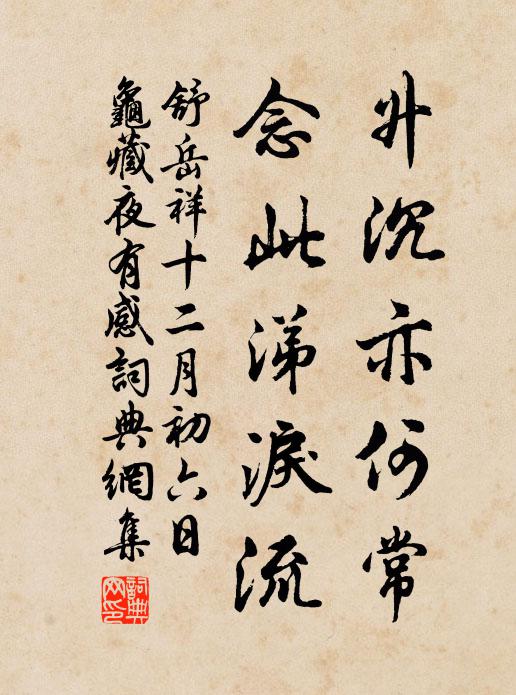 升沉亦何常
念此涕淚流
舒岳祥十二月初六日
龜藏夜有感詞典網集
詞典網印